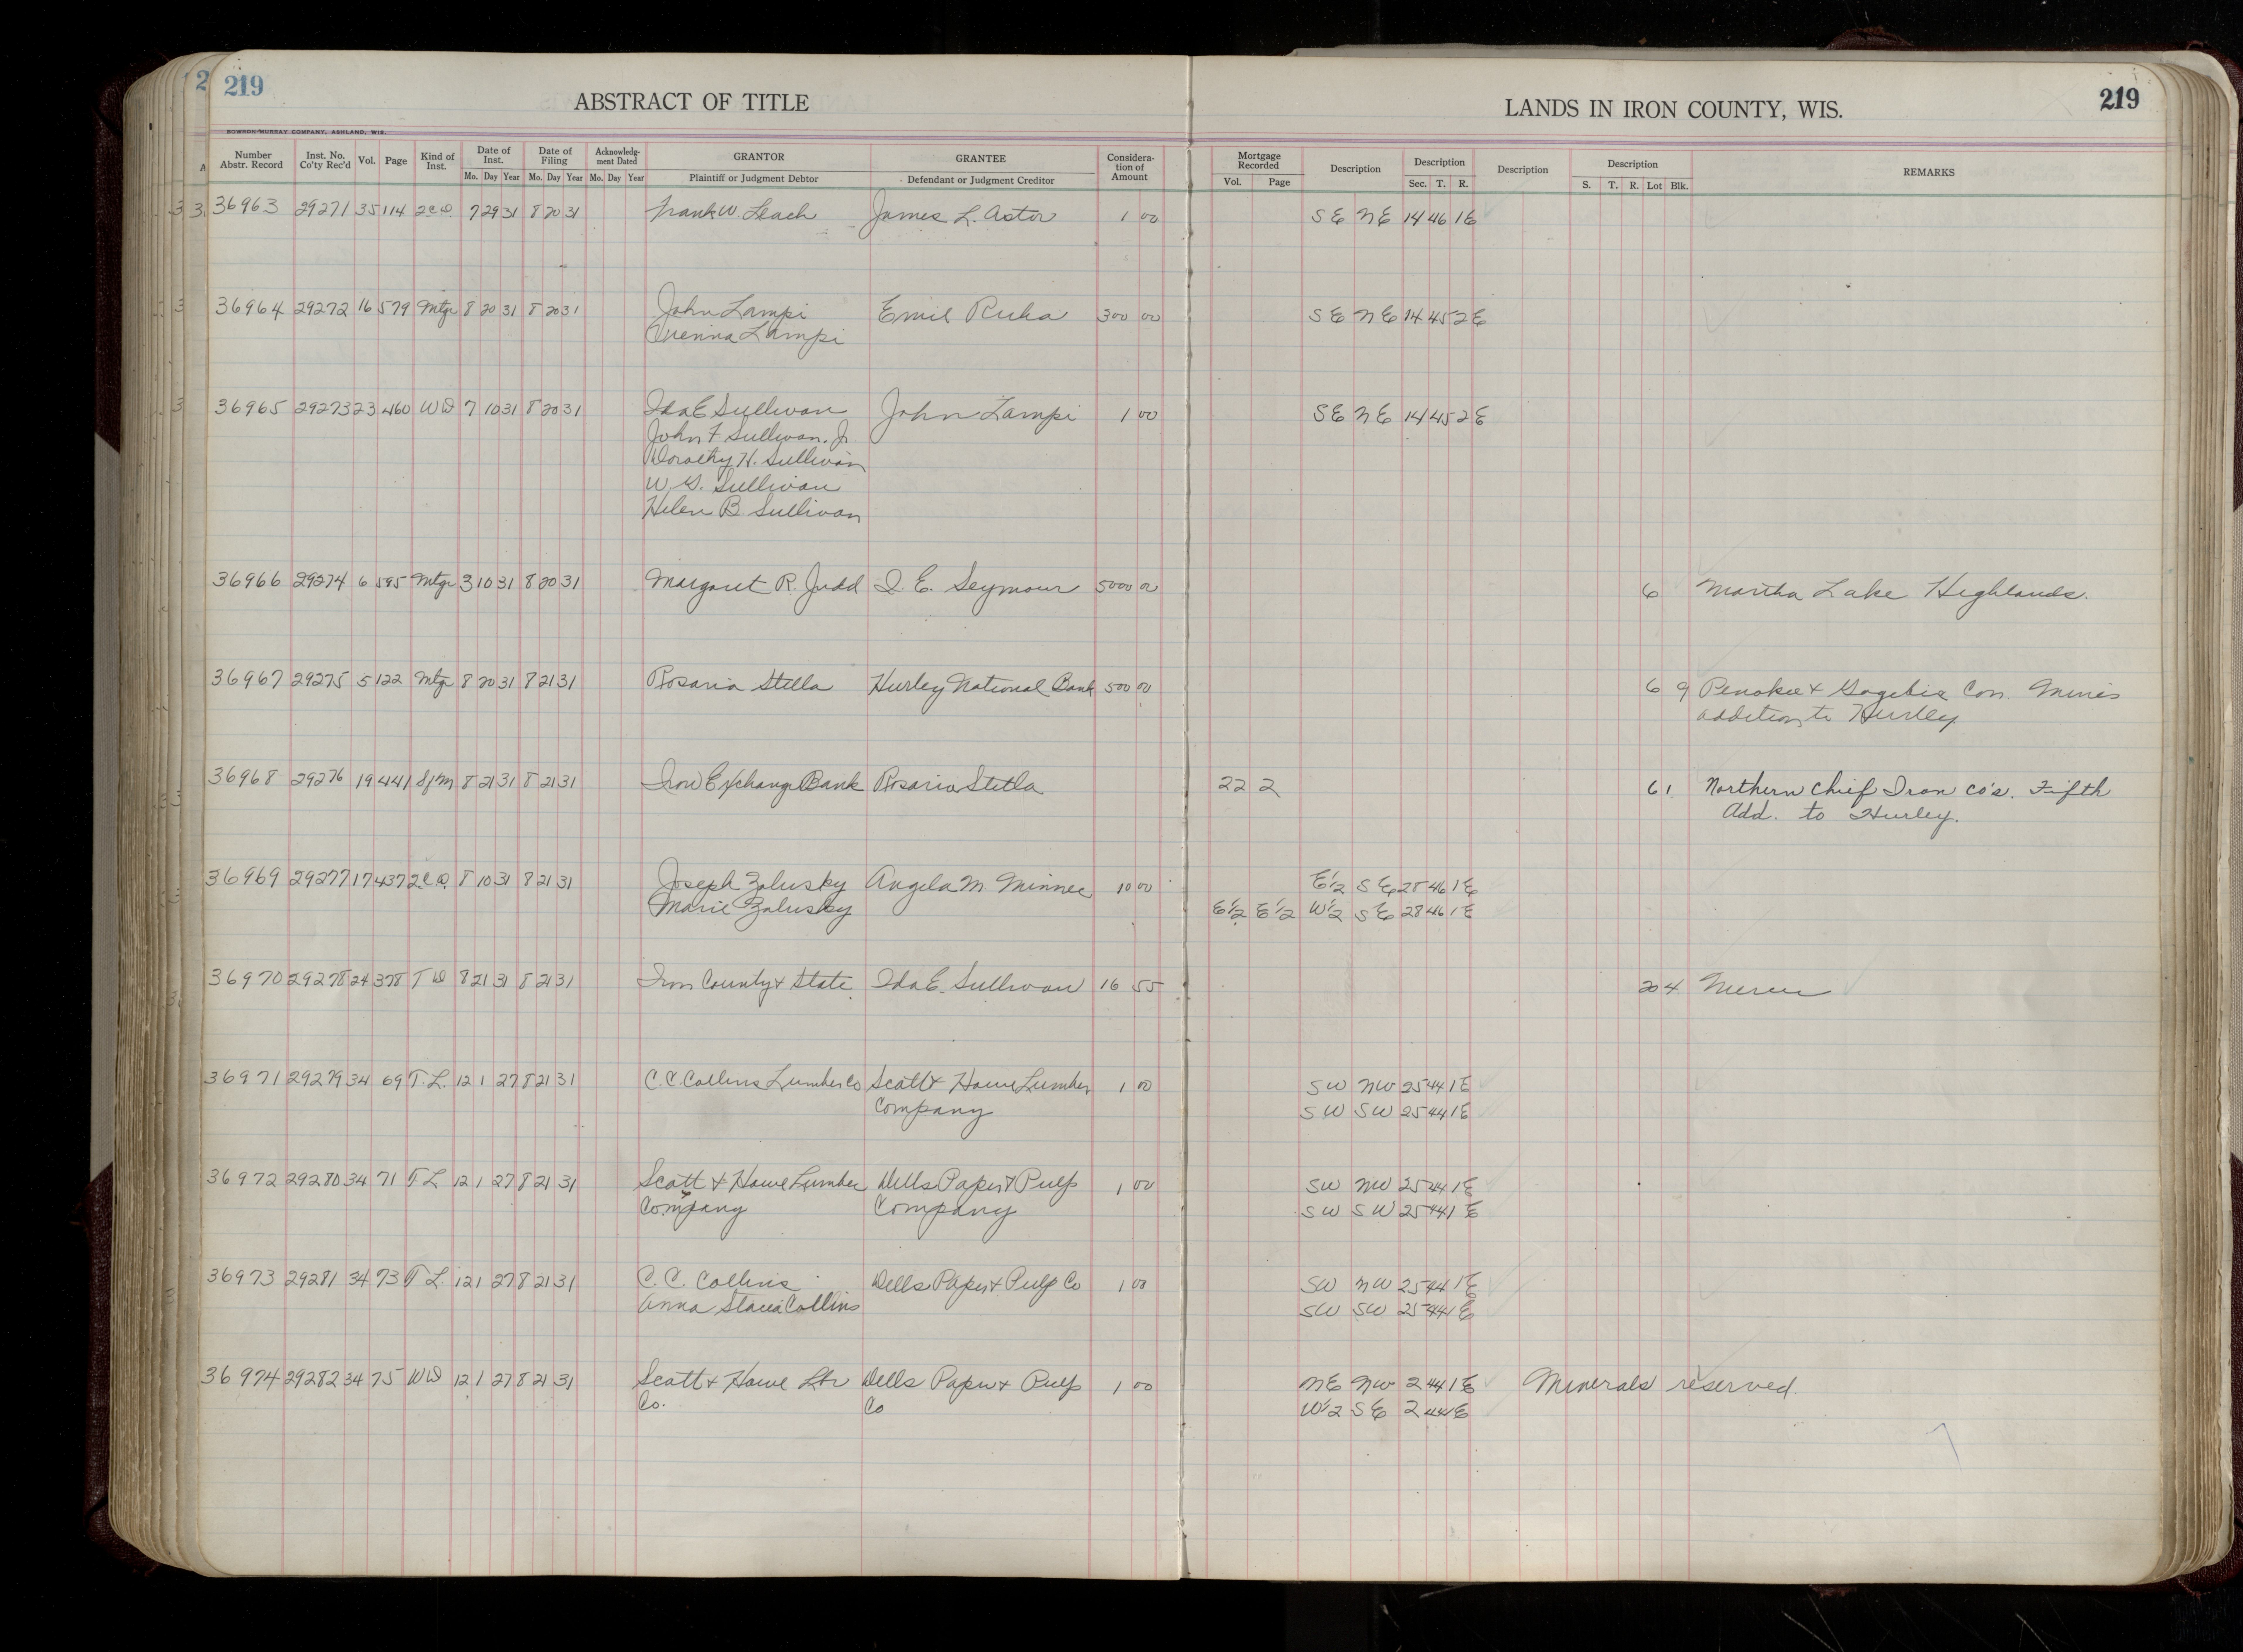 219
ABSTRACT OF TITLE
LANDS IN IRON COUNTY, WIS.
219
BOWRON-MURRAY COMPANY, ASHLAND, WIS.
Number Abstr. Record | Inst. No. Co'ty Rec'd | Vol. | Page | Kind of Inst. | Date of Inst. Mo. Day Year | Date of Filing Mo. Day Year | Acknowledg-ment Dated Mo. Day Year | GRANTOR Plaintiff or Judgment Debtor | GRANTEE Defendant or Judgment Creditor | Considera-tion of Amount | Mortgage Recorded Vol. Page | Description | Description Sec. T. R. | Description | Description S. T. R. Lot Blk. | REMARKS
36963 29271 35 114 2CD 7 29 31 8 20 31 Frank W. Leach James L. Astor 1 00 SE NE 14 46 1E
36964 29272 16 579 Mtge 8 20 31 8 20 31 John Lampi Emil Ruha 300 00 SE NE 14 45 2E
Lampi
36965 29273 23 460 WD 7 10 31 8 20 31 Ida E Sullivan John Lampi 1 00 SE NE 14 45 2E
John F. Sullivan. Jr.
Dorothy H. Sullivan
W. G. Sullivan
Helen B. Sullivan
36966 29274 6 595 Mtge 3 10 31 8 20 31 Margaret R. Judd I. E. Seymour 5000 00 6 Martha Lake Highlands.
36967 29275 5 122 Mtge 8 20 31 8 21 31 Rosario Stella Hurley National Bank 500 00 6 9 Penokee & Gogebic Con. Mines
addition to Hurley
36968 29276 19 441 SfM 8 21 31 8 21 31 Iron Exchange Bank Rosario Stella 22 2 6 1 Northern Chief Iron Co's. Fifth
Add. to Hurley.
36969 29277 17 437 2CD 8 10 31 8 21 31 Joseph Zalusky Angela M. Minnec 10 00 E1/2 SE 28 46 1E
Marie Zalusky E1/2 E1/2 W1/2 SE 28 46 1E
36970 29278 24 378 TD 8 21 31 8 21 31 Iron County & State Ida E. Sullivan 16 55 20 4 Mercer
36971 29279 34 69 T.L. 12 1 27 8 21 31 C.C. Collins Lumber Co Scott & Howe Lumber 1 00 SW NW 25 44 1E
Company SW SW 25 44 1E
36972 29280 34 71 TL 12 1 27 8 21 31 Scott & Howe Lumber Dells Paper & Pulp 1 00 SW NW 25 44 1E
Company Company SW SW 25 44 1E
36973 29281 34 73 TL 12 1 27 8 21 31 C. C. Collins Dells Paper & Pulp Co 1 00 SW NW 25 44 1E
Anna Collins SW SW 25 44 1E
36974 29282 34 75 WD 12 1 27 8 21 31 Scott & Howe Lbr Dells Paper & Pulp 1 00 NE NW 2 44 1E Minerals reserved.
Co. Co W1/2 SE 2 44 1E